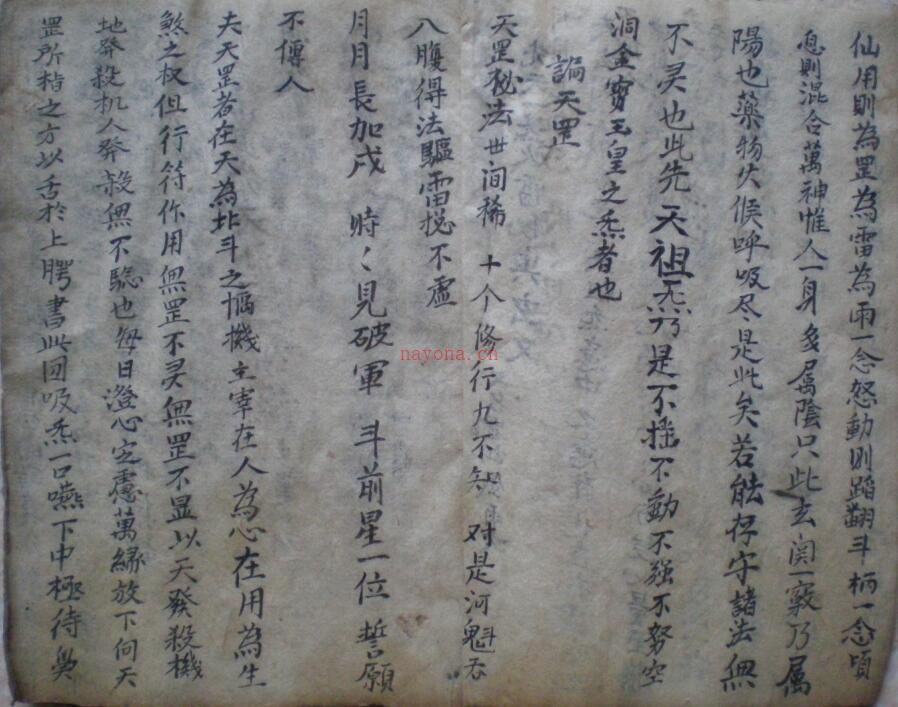 仙用則為罡為雷為雨一念怒動則蹈翻斗柄一念頃
息則混合萬神惟人一身多属陰只此玄関一竅乃属
陽也藥物火候呼吸尽是此矣若能存守諸法無
不灵也此先天祖炁乃是不摇不動不强不努空
洞金寳玉皇之炁者也
謁天罡
天罡秘法世间稀 十个修行九不知 对是河魁吞
八腹得法驅雷擾不虚
月月長加戌 時〻見破軍 斗前星一位 誓願
不傳人
夫天罡者在天為北斗之惱機主宰在人為心在用為生
煞之权但行符作用無罡不灵無罡不显以天發殺機
地發殺机人發殺無不驗也每日澄心定慮萬縁放下向天
罡所指之方以舌於上腭書此回吸炁一口嚥下中極待鼻
nayona.cn